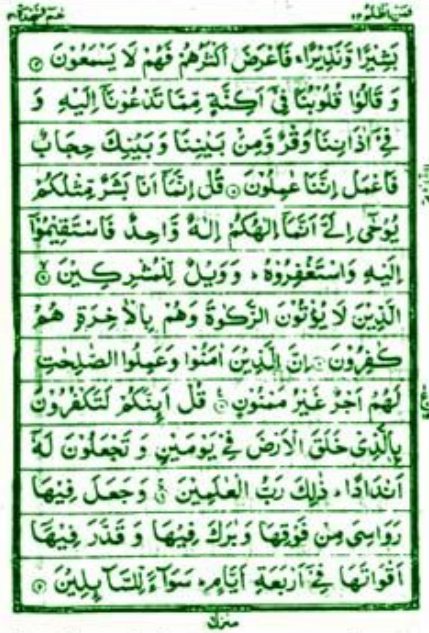 فمن اظلم ٢٤
حم السجدة ٤١
بَشِيْرًا وَّنَذِيْرًا ۚ فَاَعْرَضَ اَكْثَرُهُمْ فَهُمْ لَا يَسْمَعُوْنَ ۝
وَ قَالُوْا قُلُوْبُنَا فِيْۤ اَكِنَّةٍ مِّمَّا تَدْعُوْنَاۤ اِلَيْهِ وَ
فِيْۤ اٰذَانِنَا وَقْرٌ وَّمِنْۢ بَيْنِنَا وَ بَيْنِكَ حِجَابٌ
فَاعْمَلْ اِنَّنَا عٰمِلُوْنَ ۝ قُلْ اِنَّمَاۤ اَنَا بَشَرٌ مِّثْلُكُمْ
يُوْحٰۤى اِلَيَّ اَنَّمَاۤ اِلٰهُكُمْ اِلٰهٌ وَّاحِدٌ فَاسْتَقِيْمُوْۤا
اِلَيْهِ وَاسْتَغْفِرُوْهُ ؕ وَوَيْلٌ لِّلْمُشْرِكِيْنَ ۝
الَّذِيْنَ لَا يُؤْتُوْنَ الزَّكٰوةَ وَهُمْ بِالْاٰخِرَةِ هُمْ
كٰفِرُوْنَ ۝ اِنَّ الَّذِيْنَ اٰمَنُوْا وَعَمِلُوا الصّٰلِحٰتِ
لَهُمْ اَجْرٌ غَيْرُ مَمْنُوْنٍ ۝ قُلْ اَئِنَّكُمْ لَتَكْفُرُوْنَ
بِالَّذِيْ خَلَقَ الْاَرْضَ فِيْ يَوْمَيْنِ وَ تَجْعَلُوْنَ لَهٗۤ
اَنْدَادًا ؕ ذٰلِكَ رَبُّ الْعٰلَمِيْنَ ۝ وَجَعَلَ فِيْهَا
رَوَاسِيَ مِنْ فَوْقِهَا وَبٰرَكَ فِيْهَا وَ قَدَّرَ فِيْهَاۤ
اَقْوَاتَهَا فِيْۤ اَرْبَعَةِ اَيَّامٍ ؕ سَوَآءً لِّلسَّآئِلِيْنَ ۝
منزل